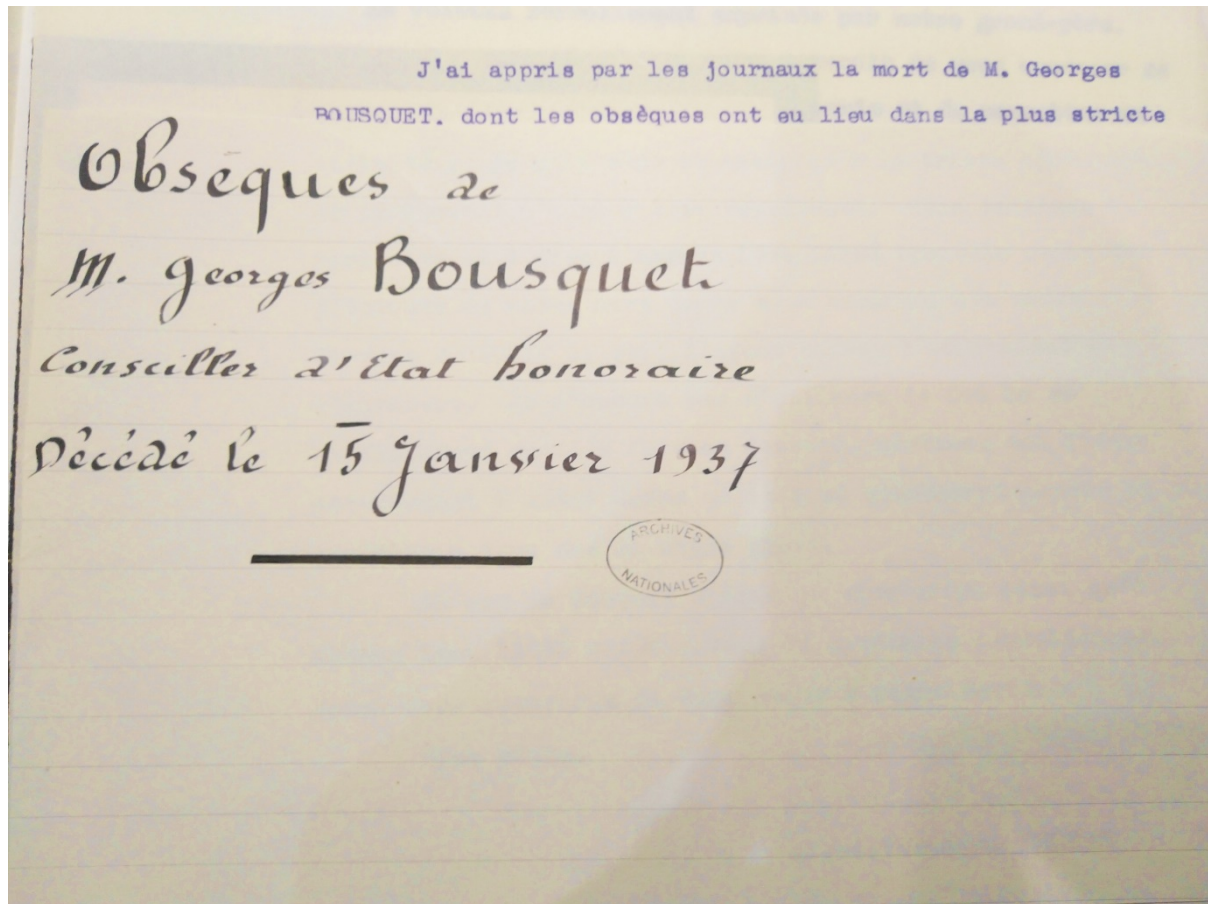 J'ai appris par les journaux la mort de M. Georges
BOUSQUET. dont les obsèques ont eu lieu dans la plus stricte
Obsèques de
M. Georges Bousquet.
Conseiller d'Etat honoraire
Décédé le 15 Janvier 1937
ARCHIVES
NATIONALES